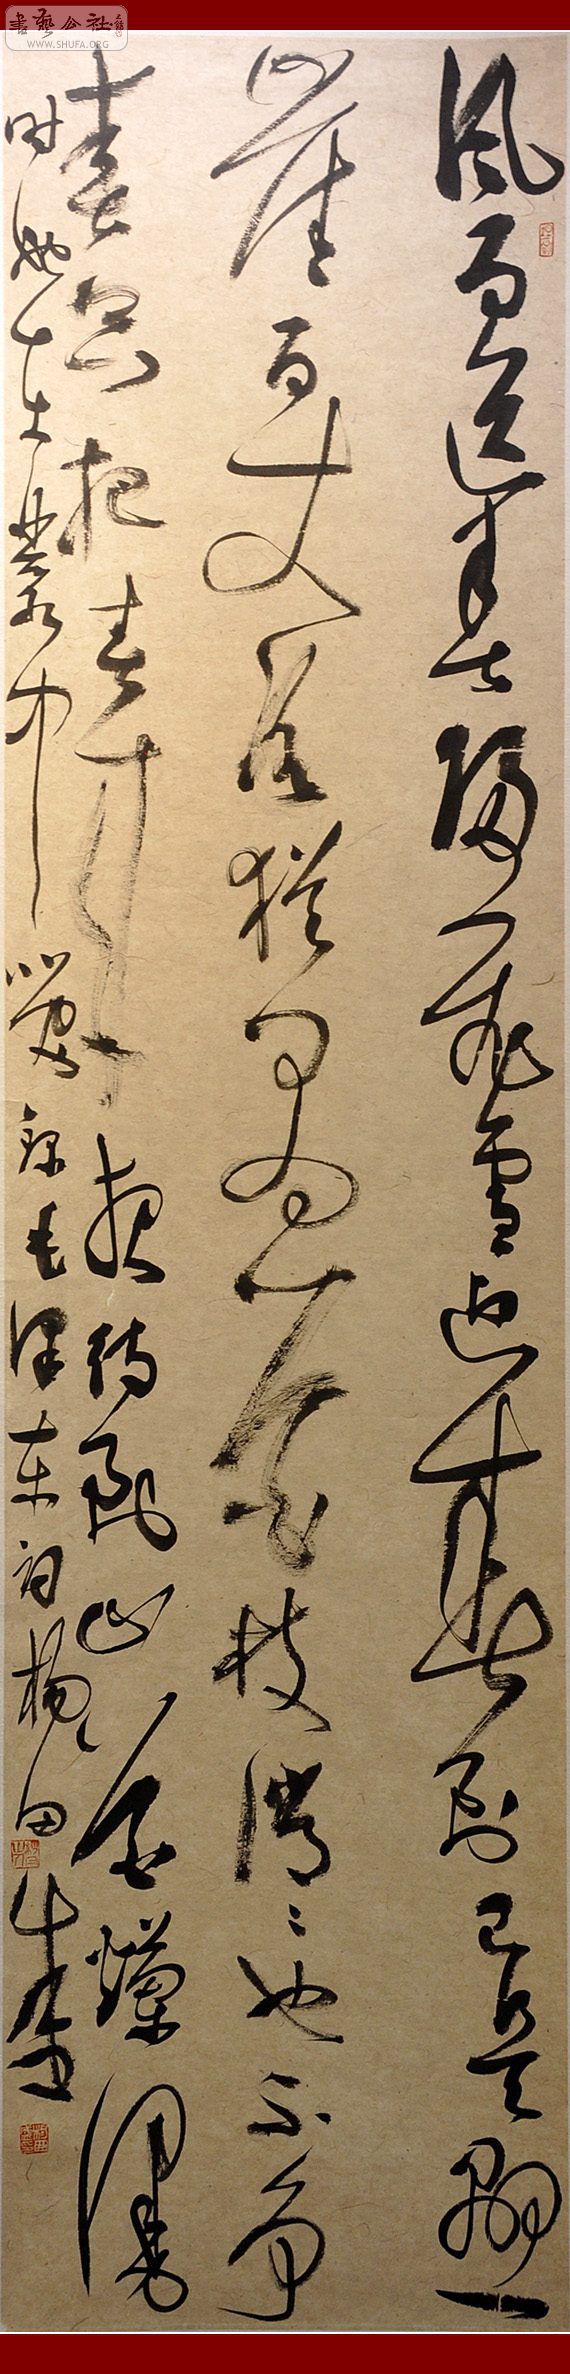 書藝公社
WWW.SHUFA.ORG
風雨送春歸飛雪迎春到已是懸
崖百丈冰猶有花枝俏〻也不爭
春只把春來報待到山花爛漫
時她在叢中笑 錄毛澤東詞楊田